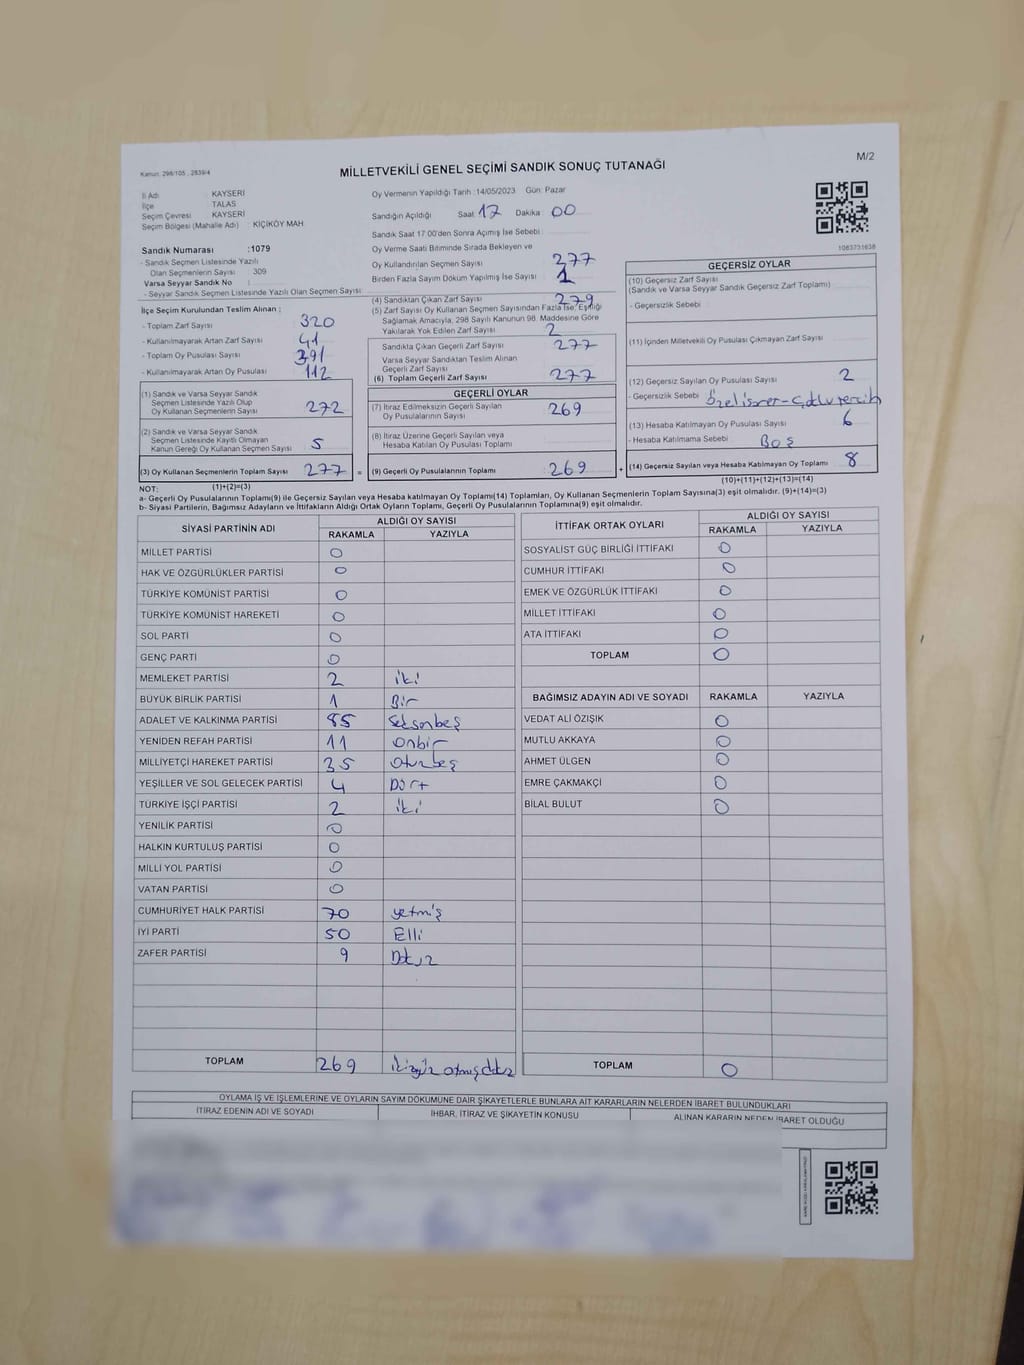 Kanun: 298/105 , 2839/4
M/2
MİLLETVEKİLİ GENEL SEÇİMİ SANDIK SONUÇ TUTANAĞI
İl Adı : KAYSERİ
İlçe TALAS
Seçim Çevresi : KAYSERİ
Seçim Bölgesi (Mahalle Adı) : KIÇIKÖY MAH
Sandık Numarası :1079
- Sandık Seçmen Listesinde Yazılı
Olan Seçmenlerin Sayısı : 309
Varsa Seyyar Sandık No :
- Seyyar Sandık Seçmen Listesinde Yazılı Olan Seçmen Sayısı:
Oy Vermenin Yapıldığı Tarih :14/05/2023 Gün: Pazar
Sandığın Açıldığı Saat 17 Dakika 00
Sandık Saat 17:00'den Sonra Açılmış İse Sebebi :
Oy Verme Saati Bitiminde Sırada Bekleyen ve
Oy Kullandırılan Seçmen Sayısı 277
Birden Fazla Sayım Döküm Yapılmış İse Sayısı 1
1083731638
İlçe Seçim Kurulundan Teslim Alınan :
- Toplam Zarf Sayısı 320
- Kullanılmayarak Artan Zarf Sayısı : 41
- Toplam Oy Pusulası Sayısı : 391
- Kullanılmayarak Artan Oy Pusulası : 112
(1) Sandık ve Varsa Seyyar Sandık
Seçmen Listesinde Yazılı Olup
Oy Kullanan Seçmenlerin Sayısı 272
(2) Sandık ve Varsa Seyyar Sandık
Seçmen Listesinde Kayıtlı Olmayan
Kanun Gereği Oy Kullanan Seçmen Sayısı 5
(3) Oy Kullanan Seçmenlerin Toplam Sayısı 277 =
(1)+(2)=(3)
(4) Sandıktan Çıkan Zarf Sayısı 279
(5) Zarf Sayısı Oy Kullanan Seçmen Sayısından Fazla İse, Eşitliği
Sağlamak Amacıyla, 298 Sayılı Kanunun 98. Maddesine Göre
Yakılarak Yok Edilen Zarf Sayısı 2
Sandıkta Çıkan Geçerli Zarf Sayısı 277
Varsa Seyyar Sandıktan Teslim Alınan
Geçerli Zarf Sayısı
(6) Toplam Geçerli Zarf Sayısı 277
GEÇERLİ OYLAR
(7) İtiraz Edilmeksizin Geçerli Sayılan
Oy Pusulalarının Sayısı 269
(8) İtiraz Üzerine Geçerli Sayılan veya
Hesaba Katılan Oy Pusulası Toplamı
(9) Geçerli Oy Pusulalarının Toplamı 269 +
GEÇERSİZ OYLAR
(10) Geçersiz Zarf Sayısı
(Sandık ve Varsa Seyyar Sandık Geçersiz Zarf Toplamı)
- Geçersizlik Sebebi :
(11) İçinden Milletvekili Oy Pusulası Çıkmayan Zarf Sayısı
(12) Geçersiz Sayılan Oy Pusulası Sayısı 2
- Geçersizlik Sebebi :
(13) Hesaba Katılmayan Oy Pusulası Sayısı 6
- Hesaba Katılmama Sebebi : Boş
(14) Geçersiz Sayılan veya Hesaba Katılmayan Oy Toplamı 8
(10)+(11)+(12)+(13)=(14)
NOT:
a- Geçerli Oy Pusulalarının Toplamı(9) ile Geçersiz Sayılan veya Hesaba katılmayan Oy Toplamı(14) Toplamları, Oy Kullanan Seçmenlerin Toplam Sayısına(3) eşit olmalıdır. (9)+(14)=(3)
b- Siyasi Partilerin, Bağımsız Adayların ve İttifakların Aldığı Ortak Oyların Toplamı, Geçerli Oy Pusulalarının Toplamına(9) eşit olmalıdır.
SİYASİ PARTİNİN ADI ALDIĞI OY SAYISI
RAKAMLA YAZIYLA
MİLLET PARTİSİ 0
HAK VE ÖZGÜRLÜKLER PARTİSİ 0
TÜRKİYE KOMÜNİST PARTİSİ 0
TÜRKİYE KOMÜNİST HAREKETİ 0
SOL PARTİ 0
GENÇ PARTİ 0
MEMLEKET PARTİSİ 2 iki
BÜYÜK BİRLİK PARTİSİ 1 Bir
ADALET VE KALKINMA PARTİSİ 85 Seksenbeş
YENİDEN REFAH PARTİSİ 11 onbir
MİLLİYETÇİ HAREKET PARTİSİ 35 otuzbeş
YEŞİLLER VE SOL GELECEK PARTİSİ 4 Dört
TÜRKİYE İŞÇİ PARTİSİ 2 iki
YENİLİK PARTİSİ 0
HALKIN KURTULUŞ PARTİSİ 0
MİLLİ YOL PARTİSİ 0
VATAN PARTİSİ 0
CUMHURİYET HALK PARTİSİ 70 yetmiş
İYİ PARTİ 50 Elli
ZAFER PARTİSİ 9 Dokuz
TOPLAM 269 ikiyüz atmışdokuz
İTTİFAK ORTAK OYLARI ALDIĞI OY SAYISI
RAKAMLA YAZIYLA
SOSYALİST GÜÇ BİRLİĞİ İTTİFAKI 0
CUMHUR İTTİFAKI 0
EMEK VE ÖZGÜRLÜK İTTİFAKI 0
MİLLET İTTİFAKI 0
ATA İTTİFAKI 0
TOPLAM 0
BAĞIMSIZ ADAYIN ADI VE SOYADI RAKAMLA YAZIYLA
VEDAT ALİ ÖZIŞIK 0
MUTLU AKKAYA 0
AHMET ÜLGEN 0
EMRE ÇAKMAKÇİ 0
BİLAL BULUT 0
TOPLAM 0
OYLAMA İŞ VE İŞLEMLERİNE VE OYLARIN SAYIM DÖKÜMÜNE DAİR ŞİKAYETLERLE BUNLARA AİT KARARLARIN NELERDEN İBARET BULUNDUKLARI
İTİRAZ EDENİN ADI VE SOYADI İHBAR, İTİRAZ VE ŞİKAYETİN KONUSU ALINAN KARARIN NEDEN İBARET OLDUĞU